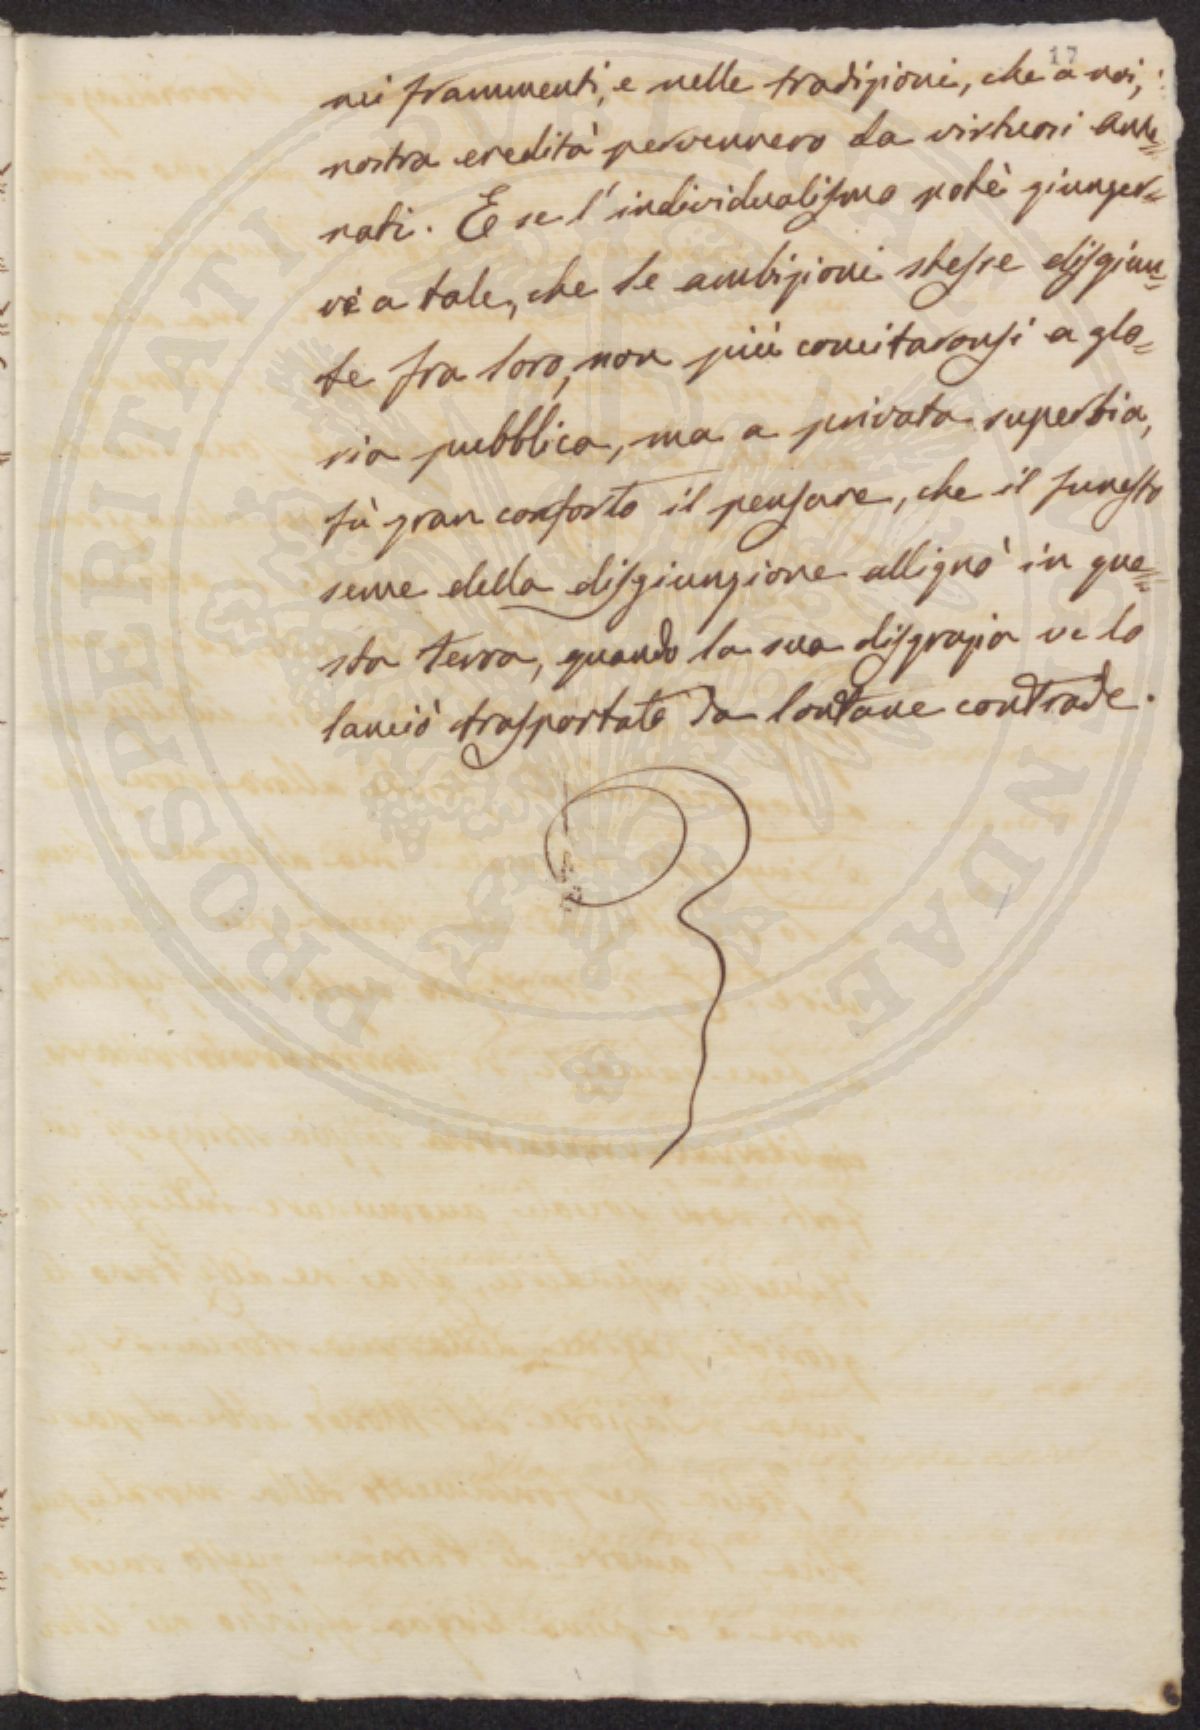 17
nei frammenti, e nelle tradizioni, che a noi,
nostra eredità pervennero da virtuosi ante=
nati. E se l'individualismo potè giunger=
vi a tale, che le ambizioni stesse disgiun=
te fra loro, non più concitaronsi a glo=
ria pubblica, ma a privata superbia,
fù gran conforto il pensare, che il funesto
seme della disgiunzione allignò in que=
sta terra, quando la sua disgrazia ve lo
lanciò trasportato da lontane contrade.
PROSPERITATI PUBLICAE AUGENDAE